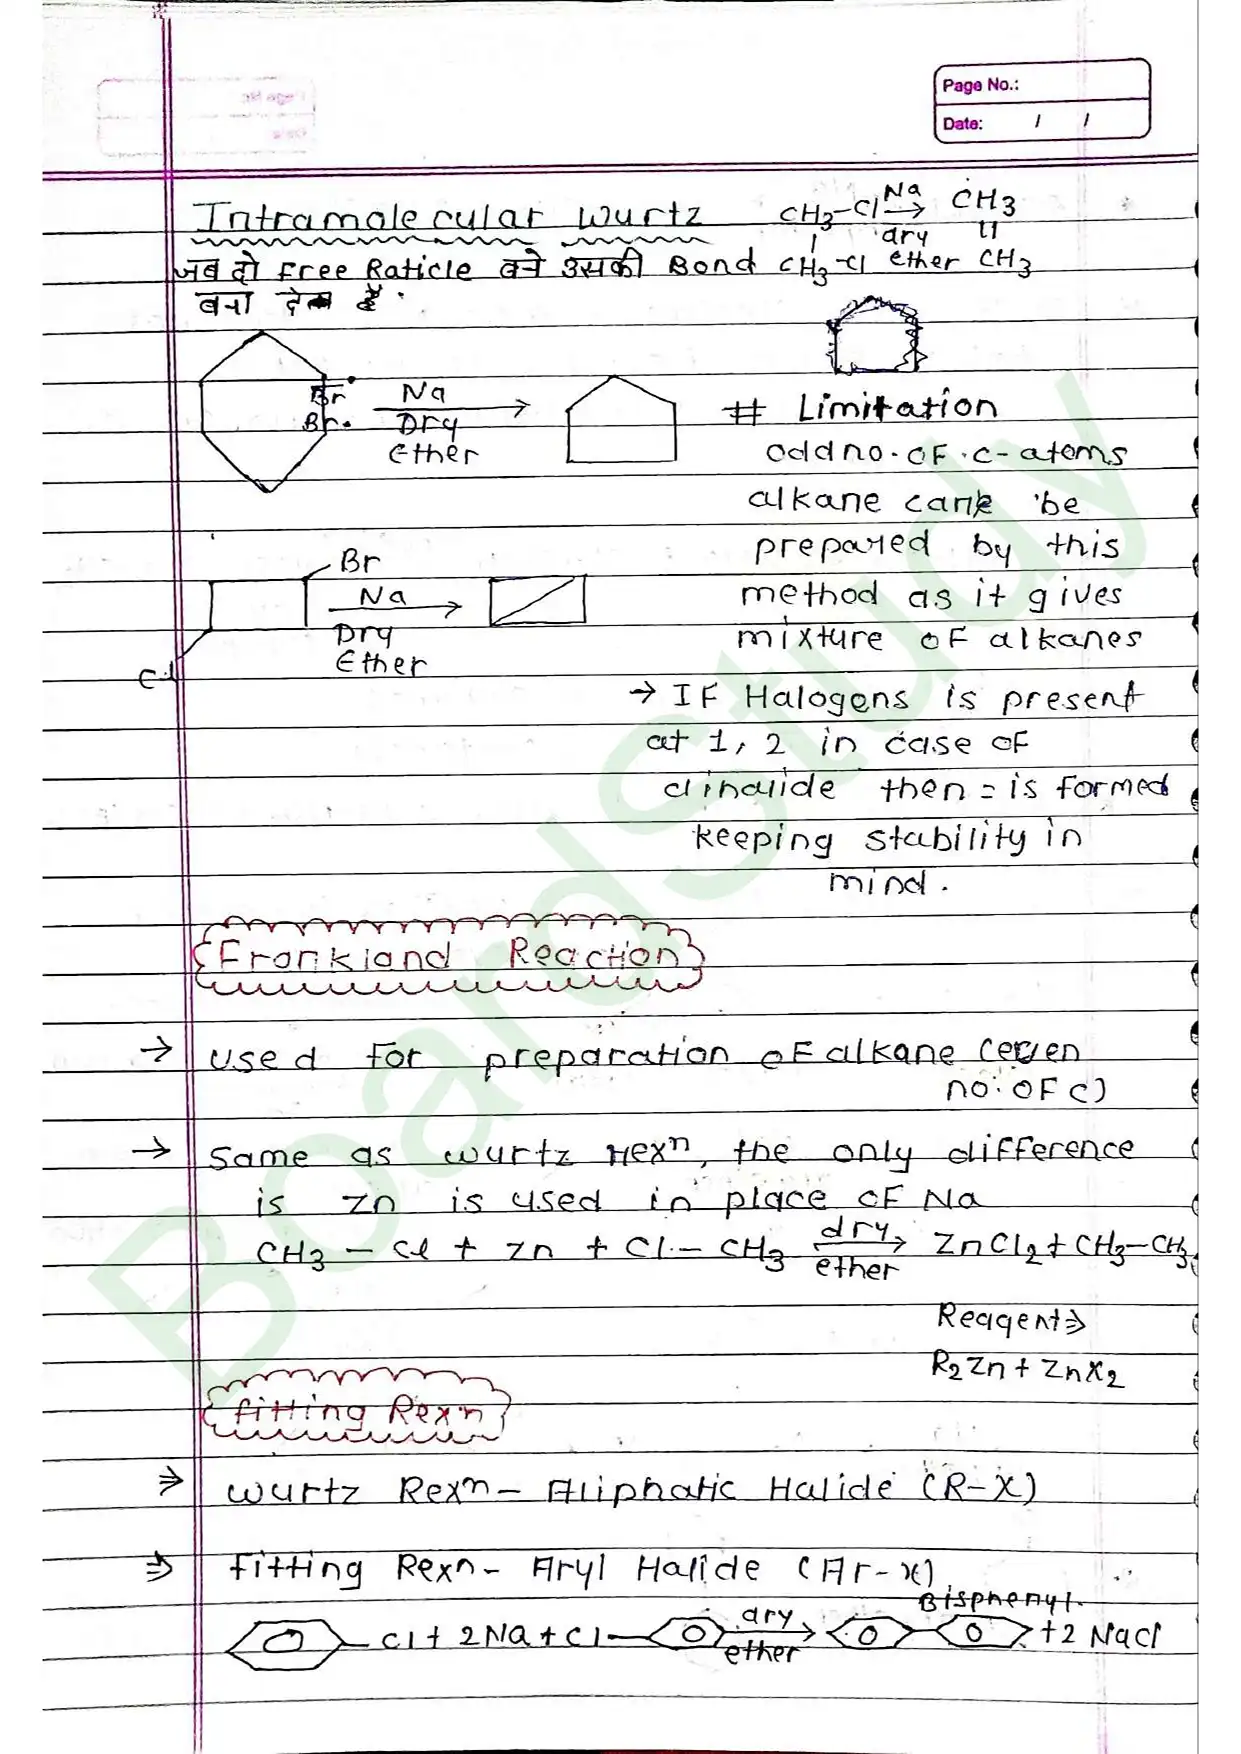 Page No.:
Date: / /
Intramolecular Wurtz
CH3-Cl Na → CH3
dry
जब दो Free Raticle बने उसकी Bond CH3-Cl ether CH3
बना है.
Br Na →
Br. Dry
Ether
# Limitation
odd no. of C-atoms
alkane be
prepared by this
method as it gives
mixture of alkanes
Br
Na →
Dry
Ether
Cl
→ If Halogens is present
at 1, 2 in case of
dihalide then = is formed
keeping stability in
mind.
Frankland Reaction
→ used for preparation of alkane (even
no. of C)
→ Same as wurtz rexn, the only difference
is Zn is used in place of Na
CH3 - Cl + Zn + Cl - CH3 dry → ZnCl2 + CH3-CH3
ether
Reagent ⇒
R2Zn + ZnX2
fitting Rexn
⇒ wurtz Rexn - Aliphatic Halide (R-X)
⇒ fitting Rexn - Aryl Halide (Ar-x)
Bisphenyl.
Cl + 2Na + Cl dry → + 2 NaCl
ether
BoardStudy